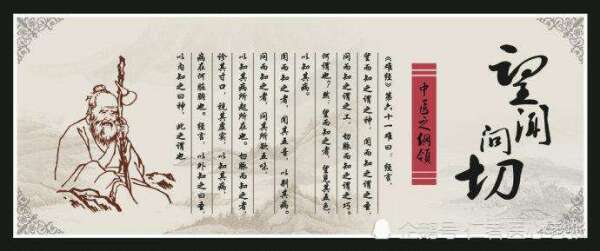 望闻问切
中医之纲领
《难经》第六十一难曰:经言,
望而知之谓之神,闻而知之谓之圣,
问而知之谓之工,切脉而知之谓之巧。
何谓也?然:望而知之者,望见其五色,
以知其病。
闻而知之者,闻其五音,以别其病。
问而知之者,问其所欲五味,
以知其病所起所在也。切脉而知之者,
诊其寸口,视其虚实,以知其病,
病在何脏腑也。经言,以外知之曰圣,
以内知之曰神,此之谓也。
企鹅号